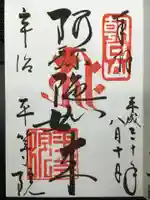 奉拝
平成三十年
八月十日
阿弥陀如来
宇治
平等院